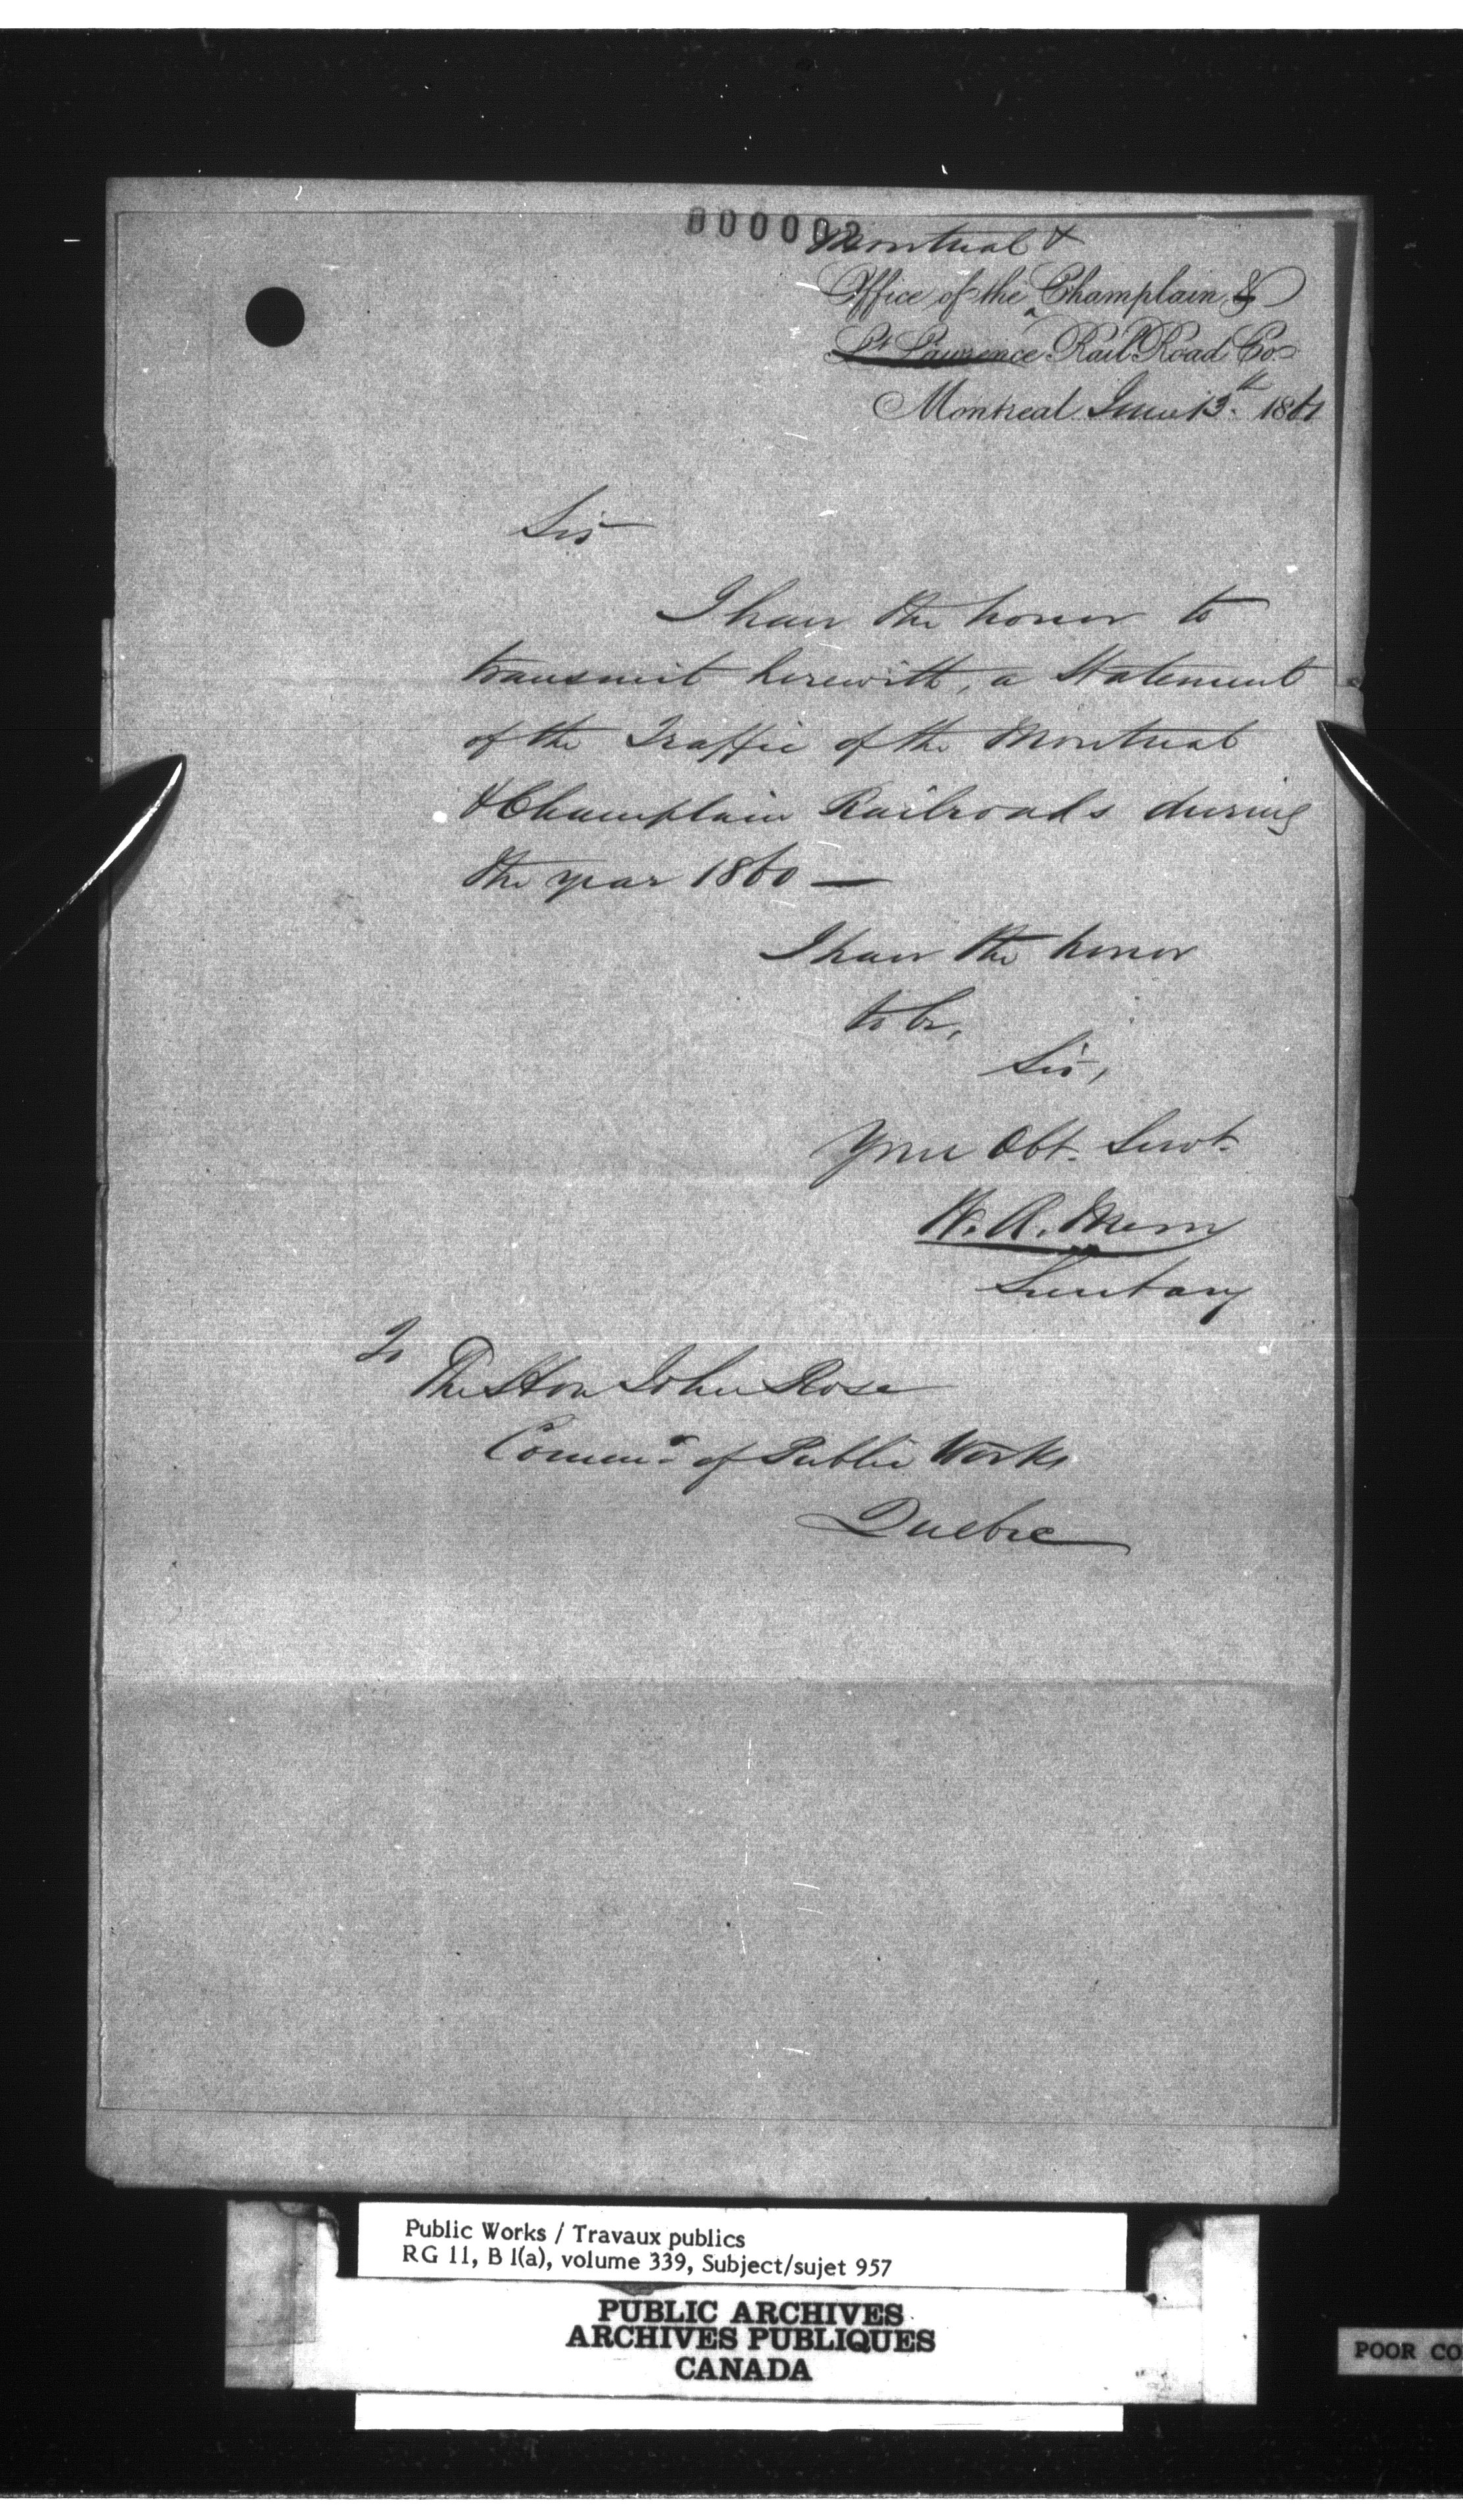 000002
Montreal &
Office of the Champlain &
St Lawrence Rail Road Co.
Montreal June 13th 1861
Sir
I have the honor to
transmit herewith, a Statement
of the Traffic of the Montreal
& Champlain Railroads during
the year 1860 —
I have the honor
to be,
Sir,
Your Obt. Servt.
W. A. Merry
Secretary
To
The Hon John Rose
Commr. of Public Works
Quebec
Public Works / Travaux publics
RG 11, B 1(a), volume 339, Subject/sujet 957
PUBLIC ARCHIVES
ARCHIVES PUBLIQUES
CANADA
POOR CO